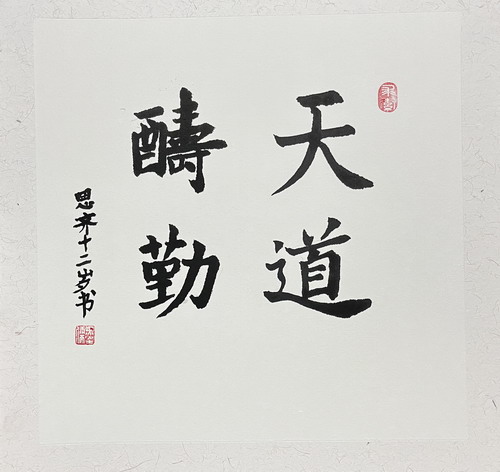 天道
醻勤
思齐十二岁书